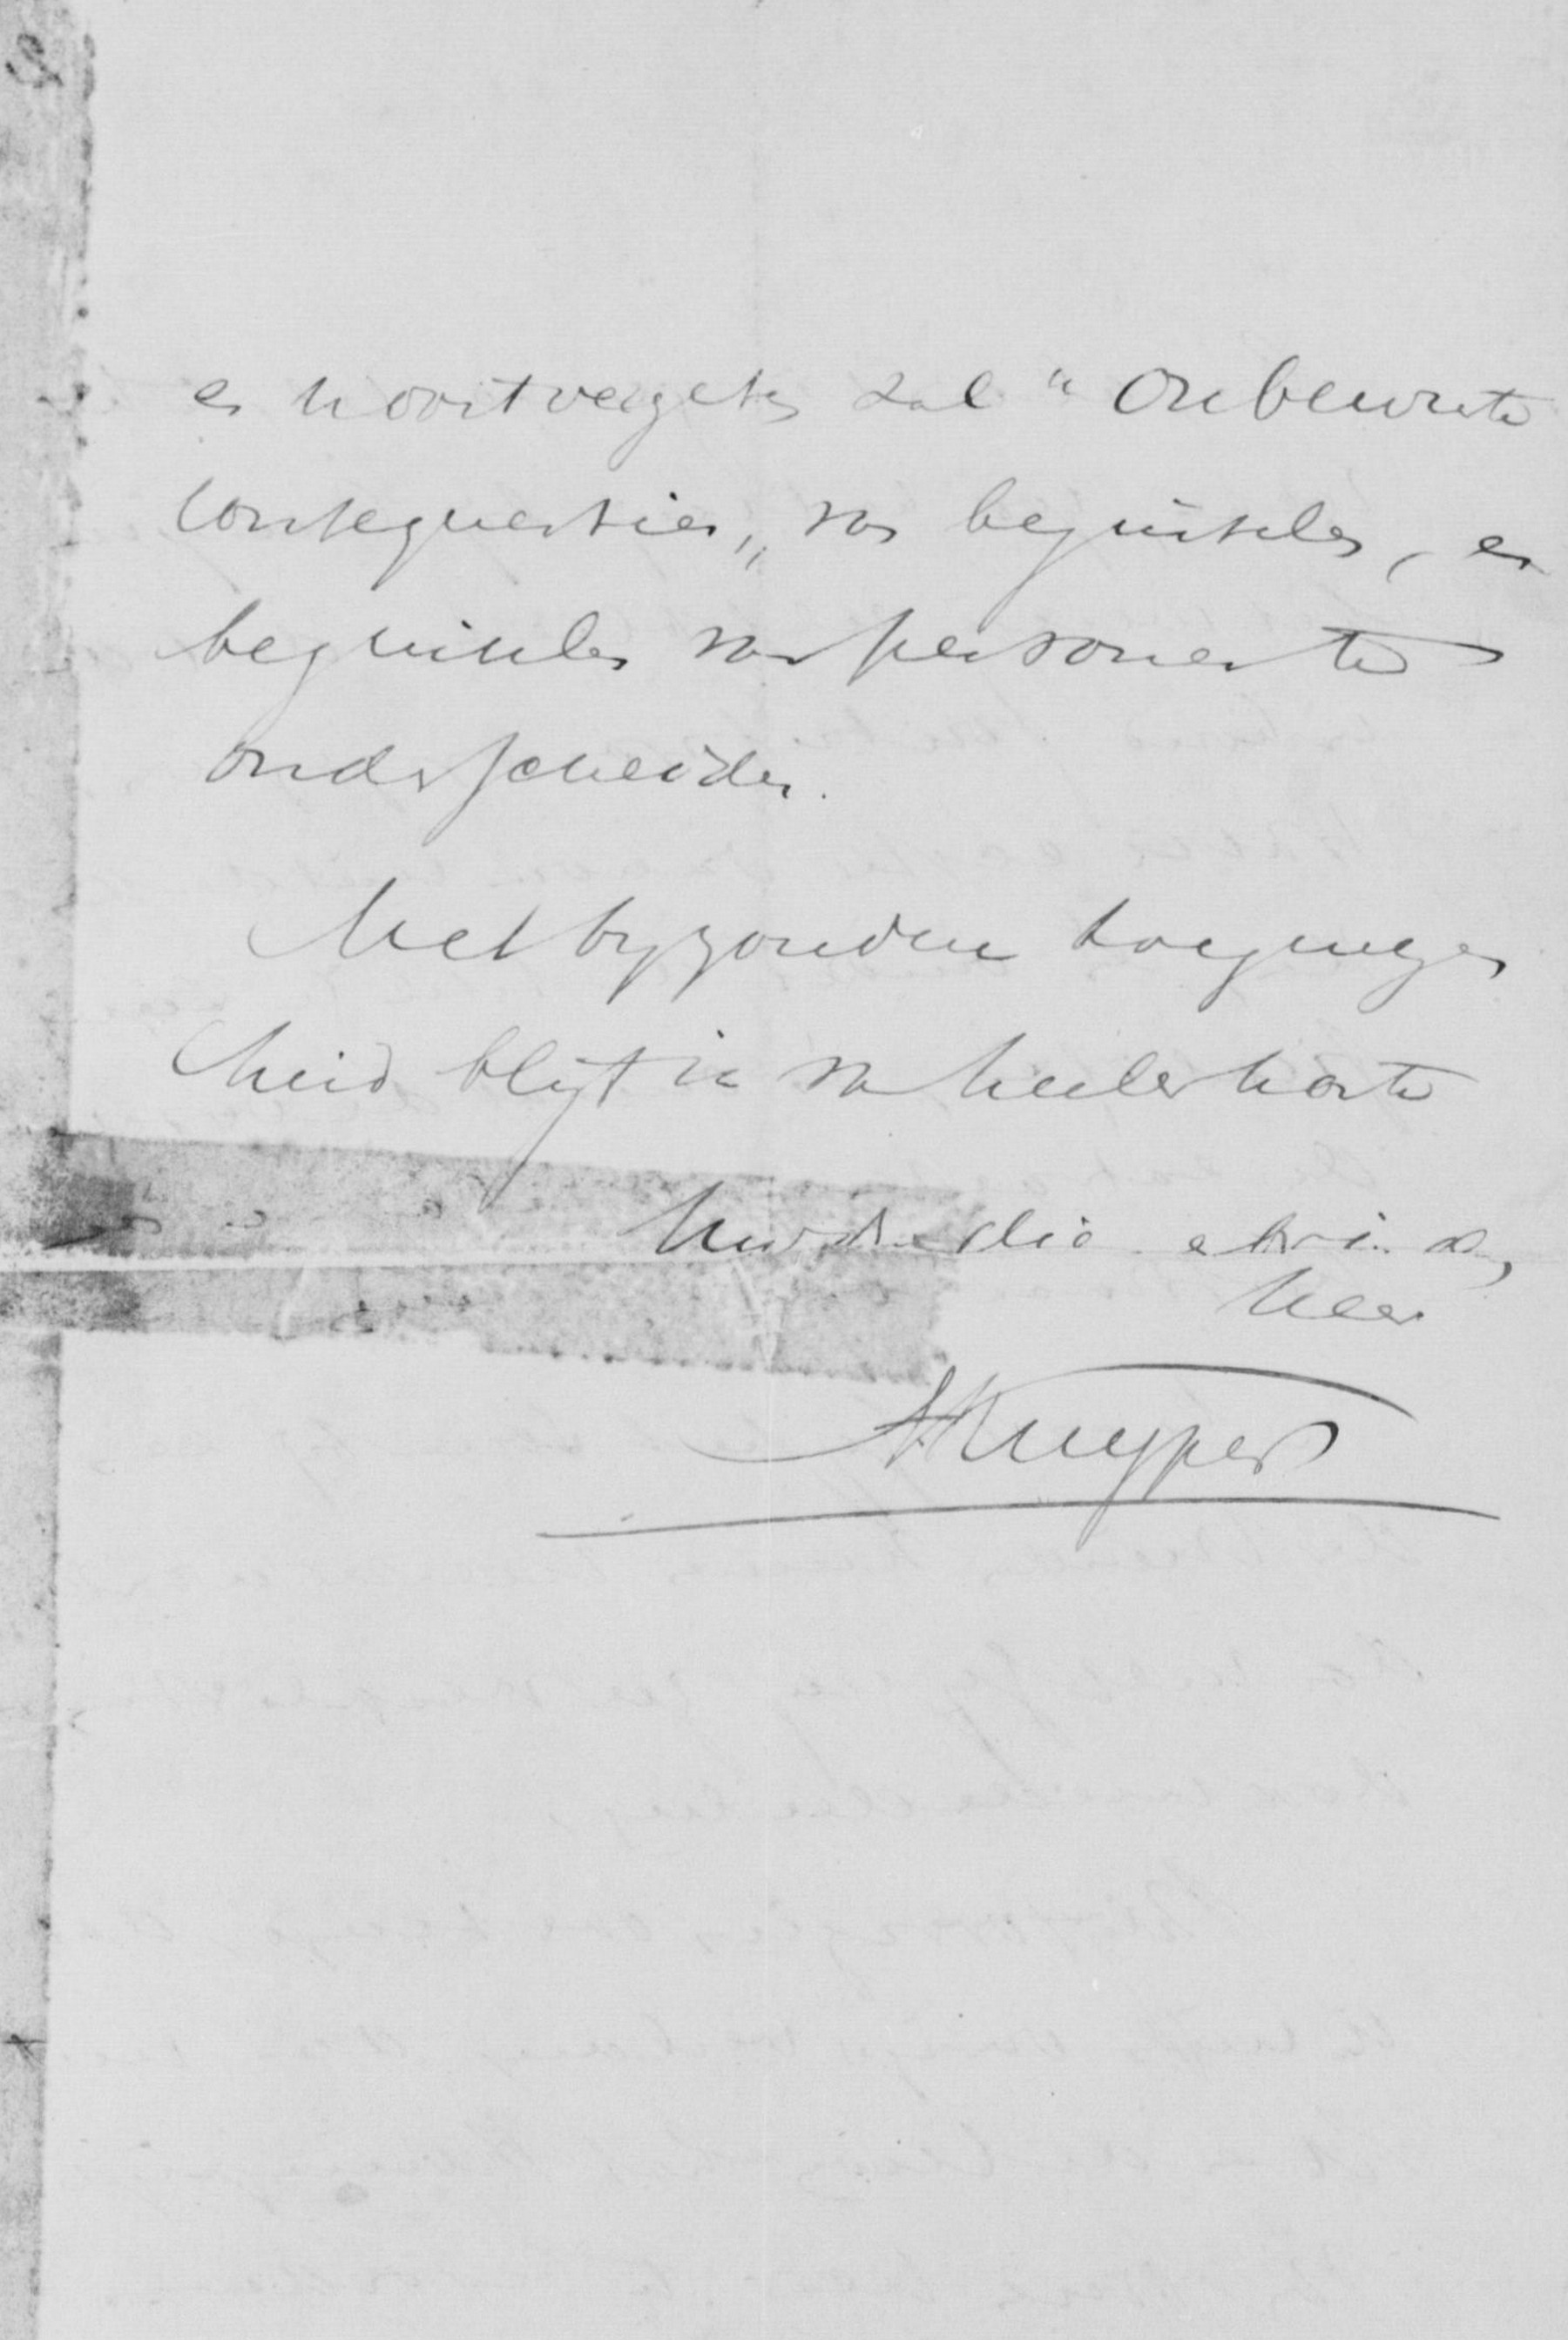 en nooit vergeten zal "Onbewuste
consequentien,, van beginselen, en
beginselen van personen te
onderscheiden.
Met byzondere toegenegen
heid blijf ik van heeler harte
Uw
A Kuyper